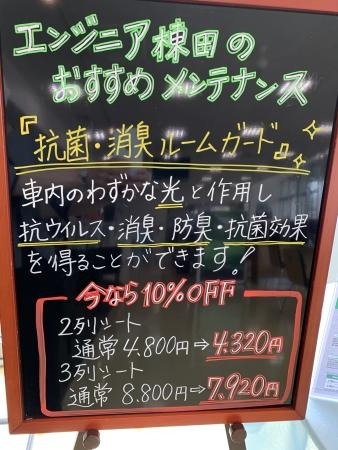 エンジニア棟田の
おすすめメンテナンス
『抗菌・消臭ルームガード』
車内のわずかな光と作用し
抗ウイルス・消臭・防臭・抗菌効果
を得ることができます!
今なら10%OFF
2列シート
通常4.800円⇒4.320円
3列シート
通常8.800円⇒7.920円